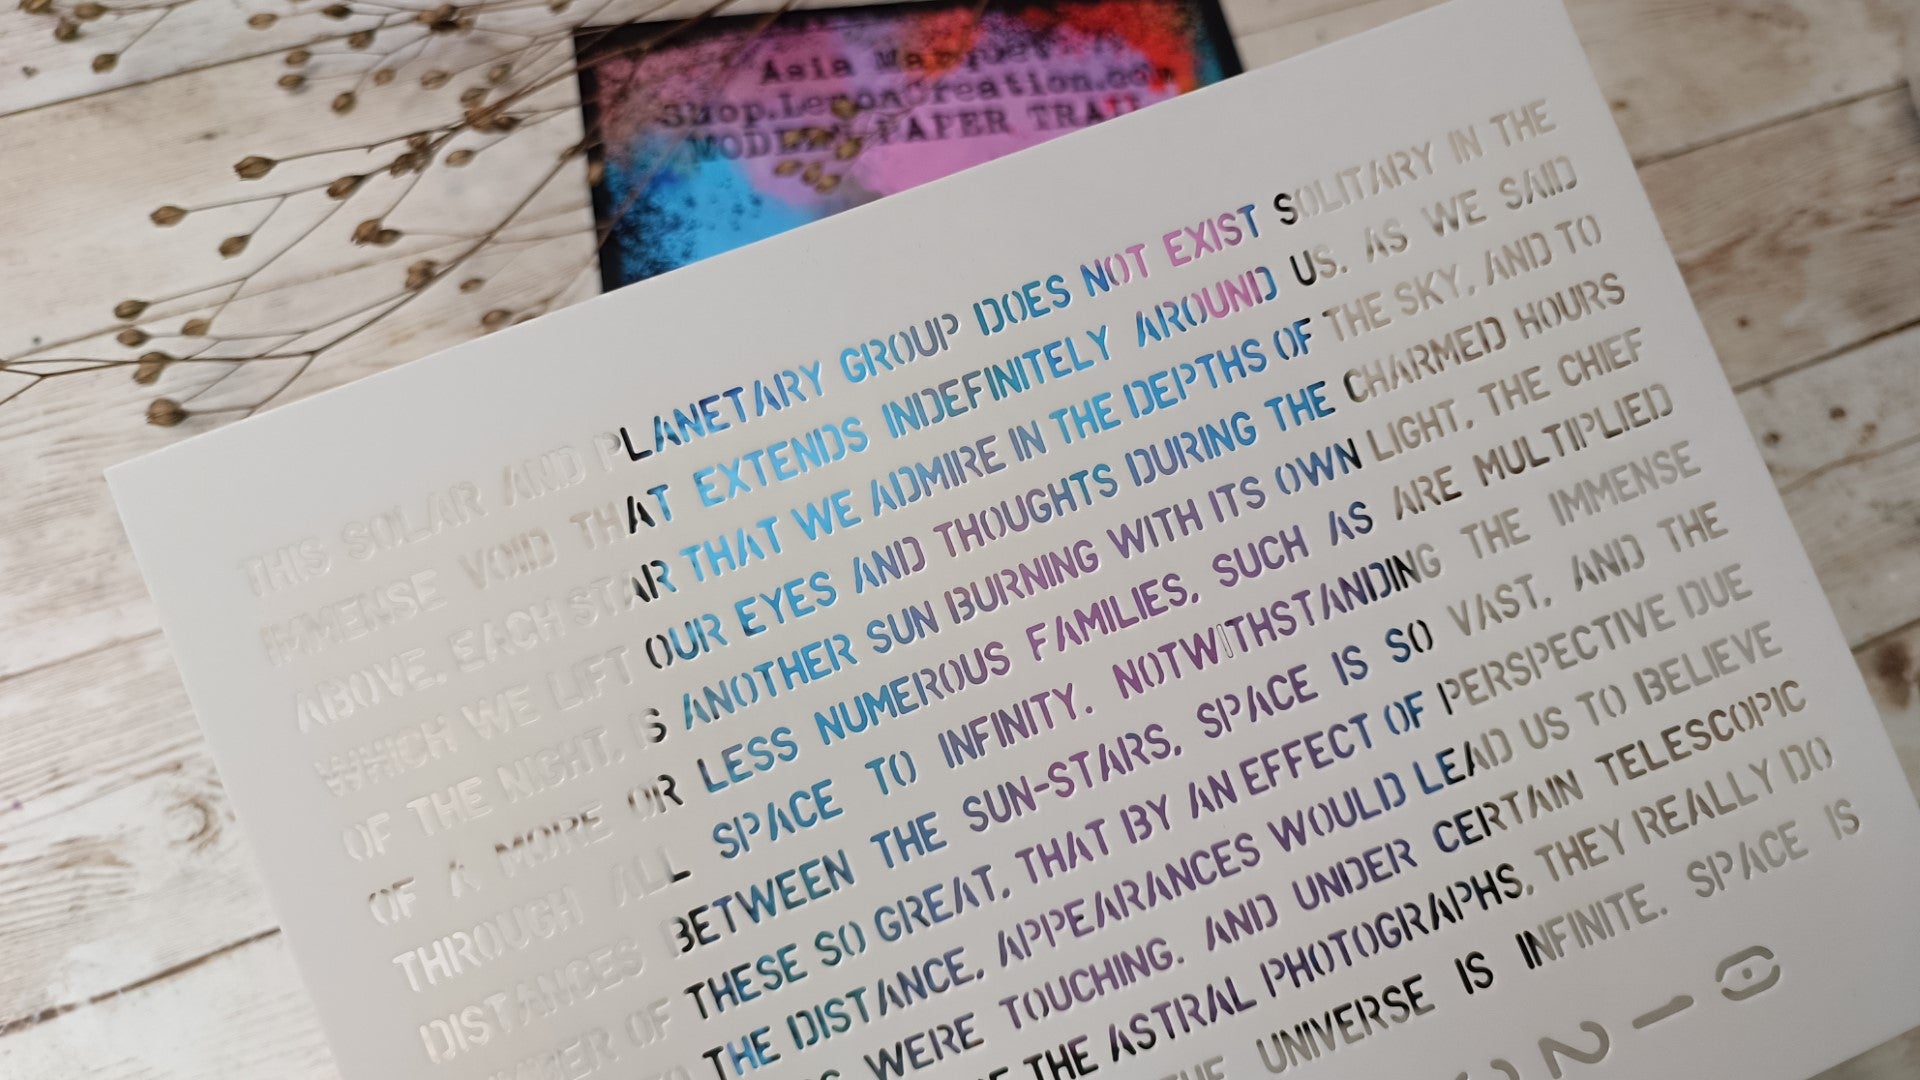 Asia Marquet
Shop.LemonCreation.com
MODERN PAPER TRAIL
THIS SOLAR AND PLANETARY GROUP DOES NOT EXIST SOLITARY IN THE
IMMENSE VOID THAT EXTENDS INDEFINITELY AROUND US. AS WE SAID
ABOVE, EACH STAR THAT WE ADMIRE IN THE DEPTHS OF THE SKY, AND TO
WHICH WE LIFT OUR EYES AND THOUGHTS DURING THE CHARMED HOURS
OF THE NIGHT, IS ANOTHER SUN BURNING WITH ITS OWN LIGHT, THE CHIEF
OF A MORE OR LESS NUMEROUS FAMILIES, SUCH AS ARE MULTIPLIED
THROUGH ALL SPACE TO INFINITY. NOTWITHSTANDING THE IMMENSE
DISTANCES BETWEEN THE SUN-STARS, SPACE IS SO VAST, AND THE
NUMBER OF THESE SO GREAT, THAT BY AN EFFECT OF PERSPECTIVE DUE
TO THE DISTANCE, APPEARANCES WOULD LEAD US TO BELIEVE
WERE TOUCHING. AND UNDER CERTAIN TELESCOPIC
THE ASTRAL PHOTOGRAPHS, THEY REALLY DO
THE UNIVERSE IS INFINITE. SPACE IS
2 1 0